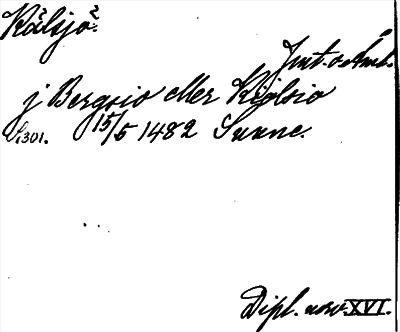 Kälsjö 2.
Jmt. o. Ånt.
j Bergsio eller Kiølsio
S. 301. 15/5 1482 Sunne.
Dipl. norv. XVI.